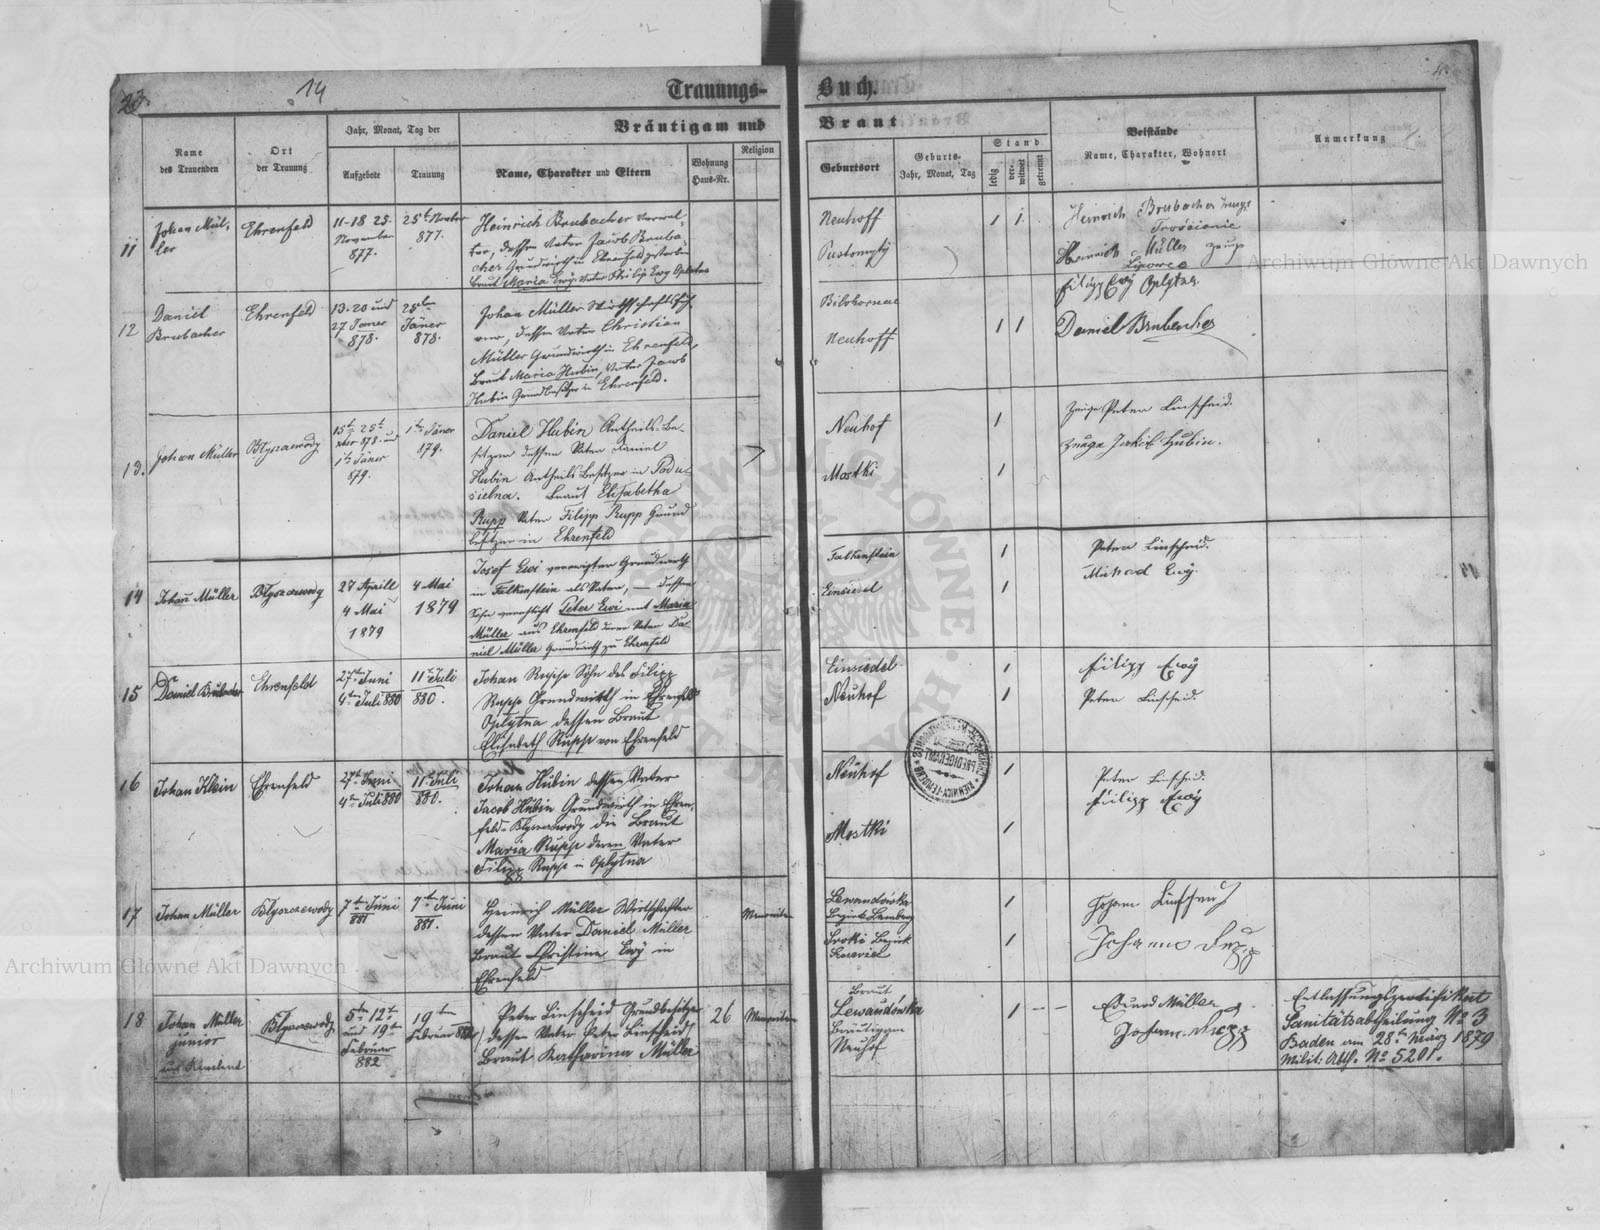 23.
14
Trauungs-
Buch.
Bräutigam und
Braut
Name
des Trauenden
Ort
der Trauung
Jahr, Monat, Tag der
Aufgebote
Trauung
Name, Charakter und Eltern
Wohnung
Haus-Nr.
Religion
Geburtsort
Geburts-
Jahr, Monat, Tag
Stand
ledig
ver-
witwet
getrennt
Beistände
Name, Charakter, Wohnort
Anmerkung
11
Johan Mül-
ler
Ehrenfeld
11-18 25.
November
877.
25t Novber
877.
Heinrich Brubacher Verwal-
ter, dessen Vater Jacob Bruba-
cher Grundwirth in Ehrenfeld gestorben
Braut Maria Ewy Vater Philip Ewy Oplytna
Neuhoff
Pustomyty
1 1.
Heinrich Brubacher Zeuge
Trościanie
Heinrich Müller Zeuge
Lipowce
Filipp Ewy Oplytna.
12
Daniel
Brubacher
Ehrenfeld
13. 20 und
27 Jäner
878.
25te
Jäner
878.
Johan Müller Wirthschaftsfüh-
rer, dessen Vater Christian
Müller Grundwirth in Ehrenfeld,
Braut Maria Hubin, Vater Jacob
Hubin Grundbesitzer in Ehrenfeld.
Bilohorszcze
Neuhoff
1 1
Daniel Brubacher
13.
Johan Müller
Błyszczewody
15t 25t
xber 878. und
1te Jäner
879.
1te Jäner
879.
Daniel Hubin Antheils Be-
sitzer dessen Vater Daniel
Hubin Antheils Besitzer in Podu-
sielna. Braut Elisabetha
Rupp Vater Filipp Rupp Grund
besitzer in Ehrenfeld
Neuhof
Mostki
1
1
Zeuge Peter Linscheid.
Zeuge Jakob Hubin.
14
Johan Müller
Błyszczewody
27 Aprill
4 Mai
1879
4 Mai
1879
Josef Ewi verewigter Grundwirth
in Falkenstein als Vater, — dessen
Sohn verehlicht Peter Ewi mit Maria
Müller aus Ehrenfeld deren Vater Da-
niel Müller Grundwirth zu Ehrenfeld
Falkenstein
Einsiedel
1
1
Peter Linscheid.
Ewy.
14
15
Daniel Brubacher
Ehrenfeld
27te Juni
4te Juli 880
11t Juli
880.
Johan Rupp Sohn des Filipp
Rupp Grundwirth in Ehrenfeld
Oplytna dessen Braut
Elisabeth Rupp von Ehrenfeld
Einsiedel
Neuhof
1
1
Filipp Ewÿ
Peter Linscheid.
16
Johan Klein
Ehrenfeld
27te Juni
4te Juli 880
11te Juli
880.
Johan Hubin dessen Vater
Jacob Hubin Grundwirth in Ehren-
feld-Błyszczewody die Braut
Maria Rupp deren Vater
Filipp Rupp in Oplytna
Neuhof
Mostki
1
1
Peter Linscheid.
Filipp Ewÿ
17
Johan Müller
Błyszczewody
7te Juni
881
7te Juni
881.
Heinrich Müller Wirtschafter
dessen Vater Daniel Müller
Braut Christine Ewy in
Ehrenfeld
Menoniten
Lewandówka
Bezirk Lemberg
Sroki Bezirk
1
1
Johann
Johannes Rupp
18
Johan Müller
junior
Błyszczewody
5te 12t
und 19t
Februar
882
19ten
Februar 882
Peter Linscheid Grundbesitzer
dessen Vater Peter Linscheid
Braut Katharina Müller
26
Menoniten
Braut
Lewandówka
Bräutigam
Neuhof
1 - -
Eduard Müller
Johann Rupp
Entlassungszertifikat
Sanitätsabtheilung No 3
Baden am 28t März 1879
Milit: Abth. No 5201.
Archiwum Główne Akt Dawnych
Archiwum Główne Akt Dawnych